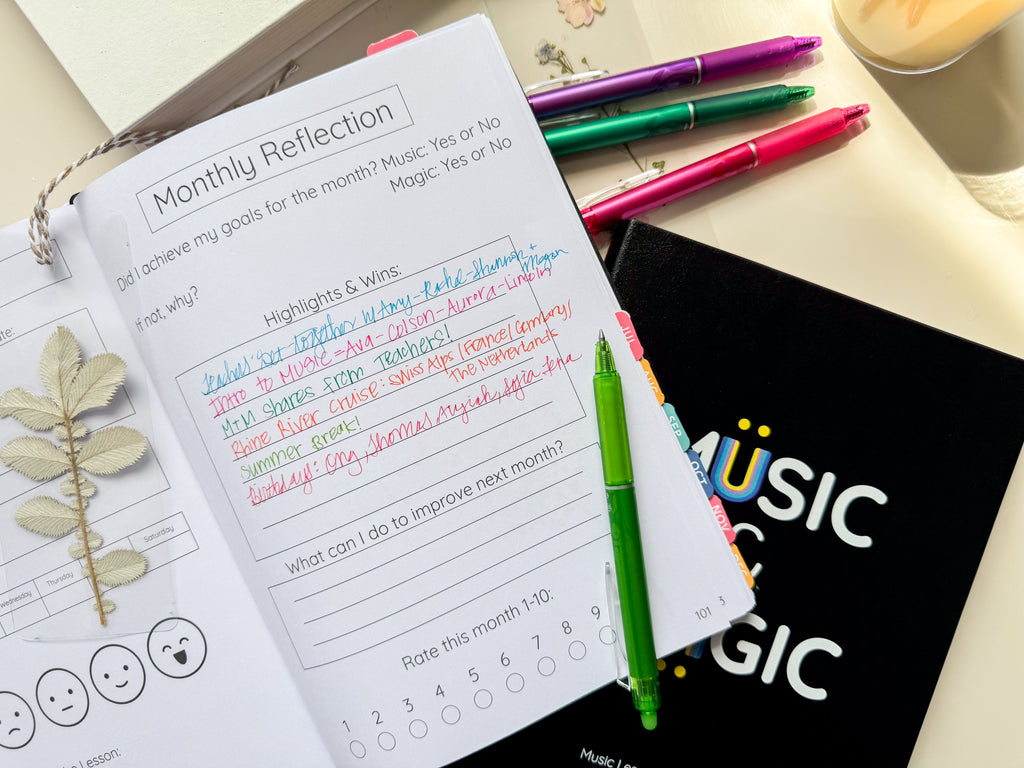 Monthly Reflection
Did I achieve my goals for the month? Music: Yes or No
Magic: Yes or No
If not, why?
Highlights & Wins:
Teachers' Get-Together w/ Amy-Rachel-Shannon +
Megan
Intro to Music = Ava-Colson-Aurora-Lincoln
M+M shares from Teachers!
Rhine River Cruise: Swiss Alps/France/Germany/
The Netherlands
Summer Break!
Birthdays:
Thomas
What can I do to improve next month?
Rate this month 1-10:
1 2 3 4 5 6 7 8 9
101 3
Wednesday
Thursday
Saturday
Lesson:
JUL
SEP
OCT
NOV
MUSIC
MAGIC
Music